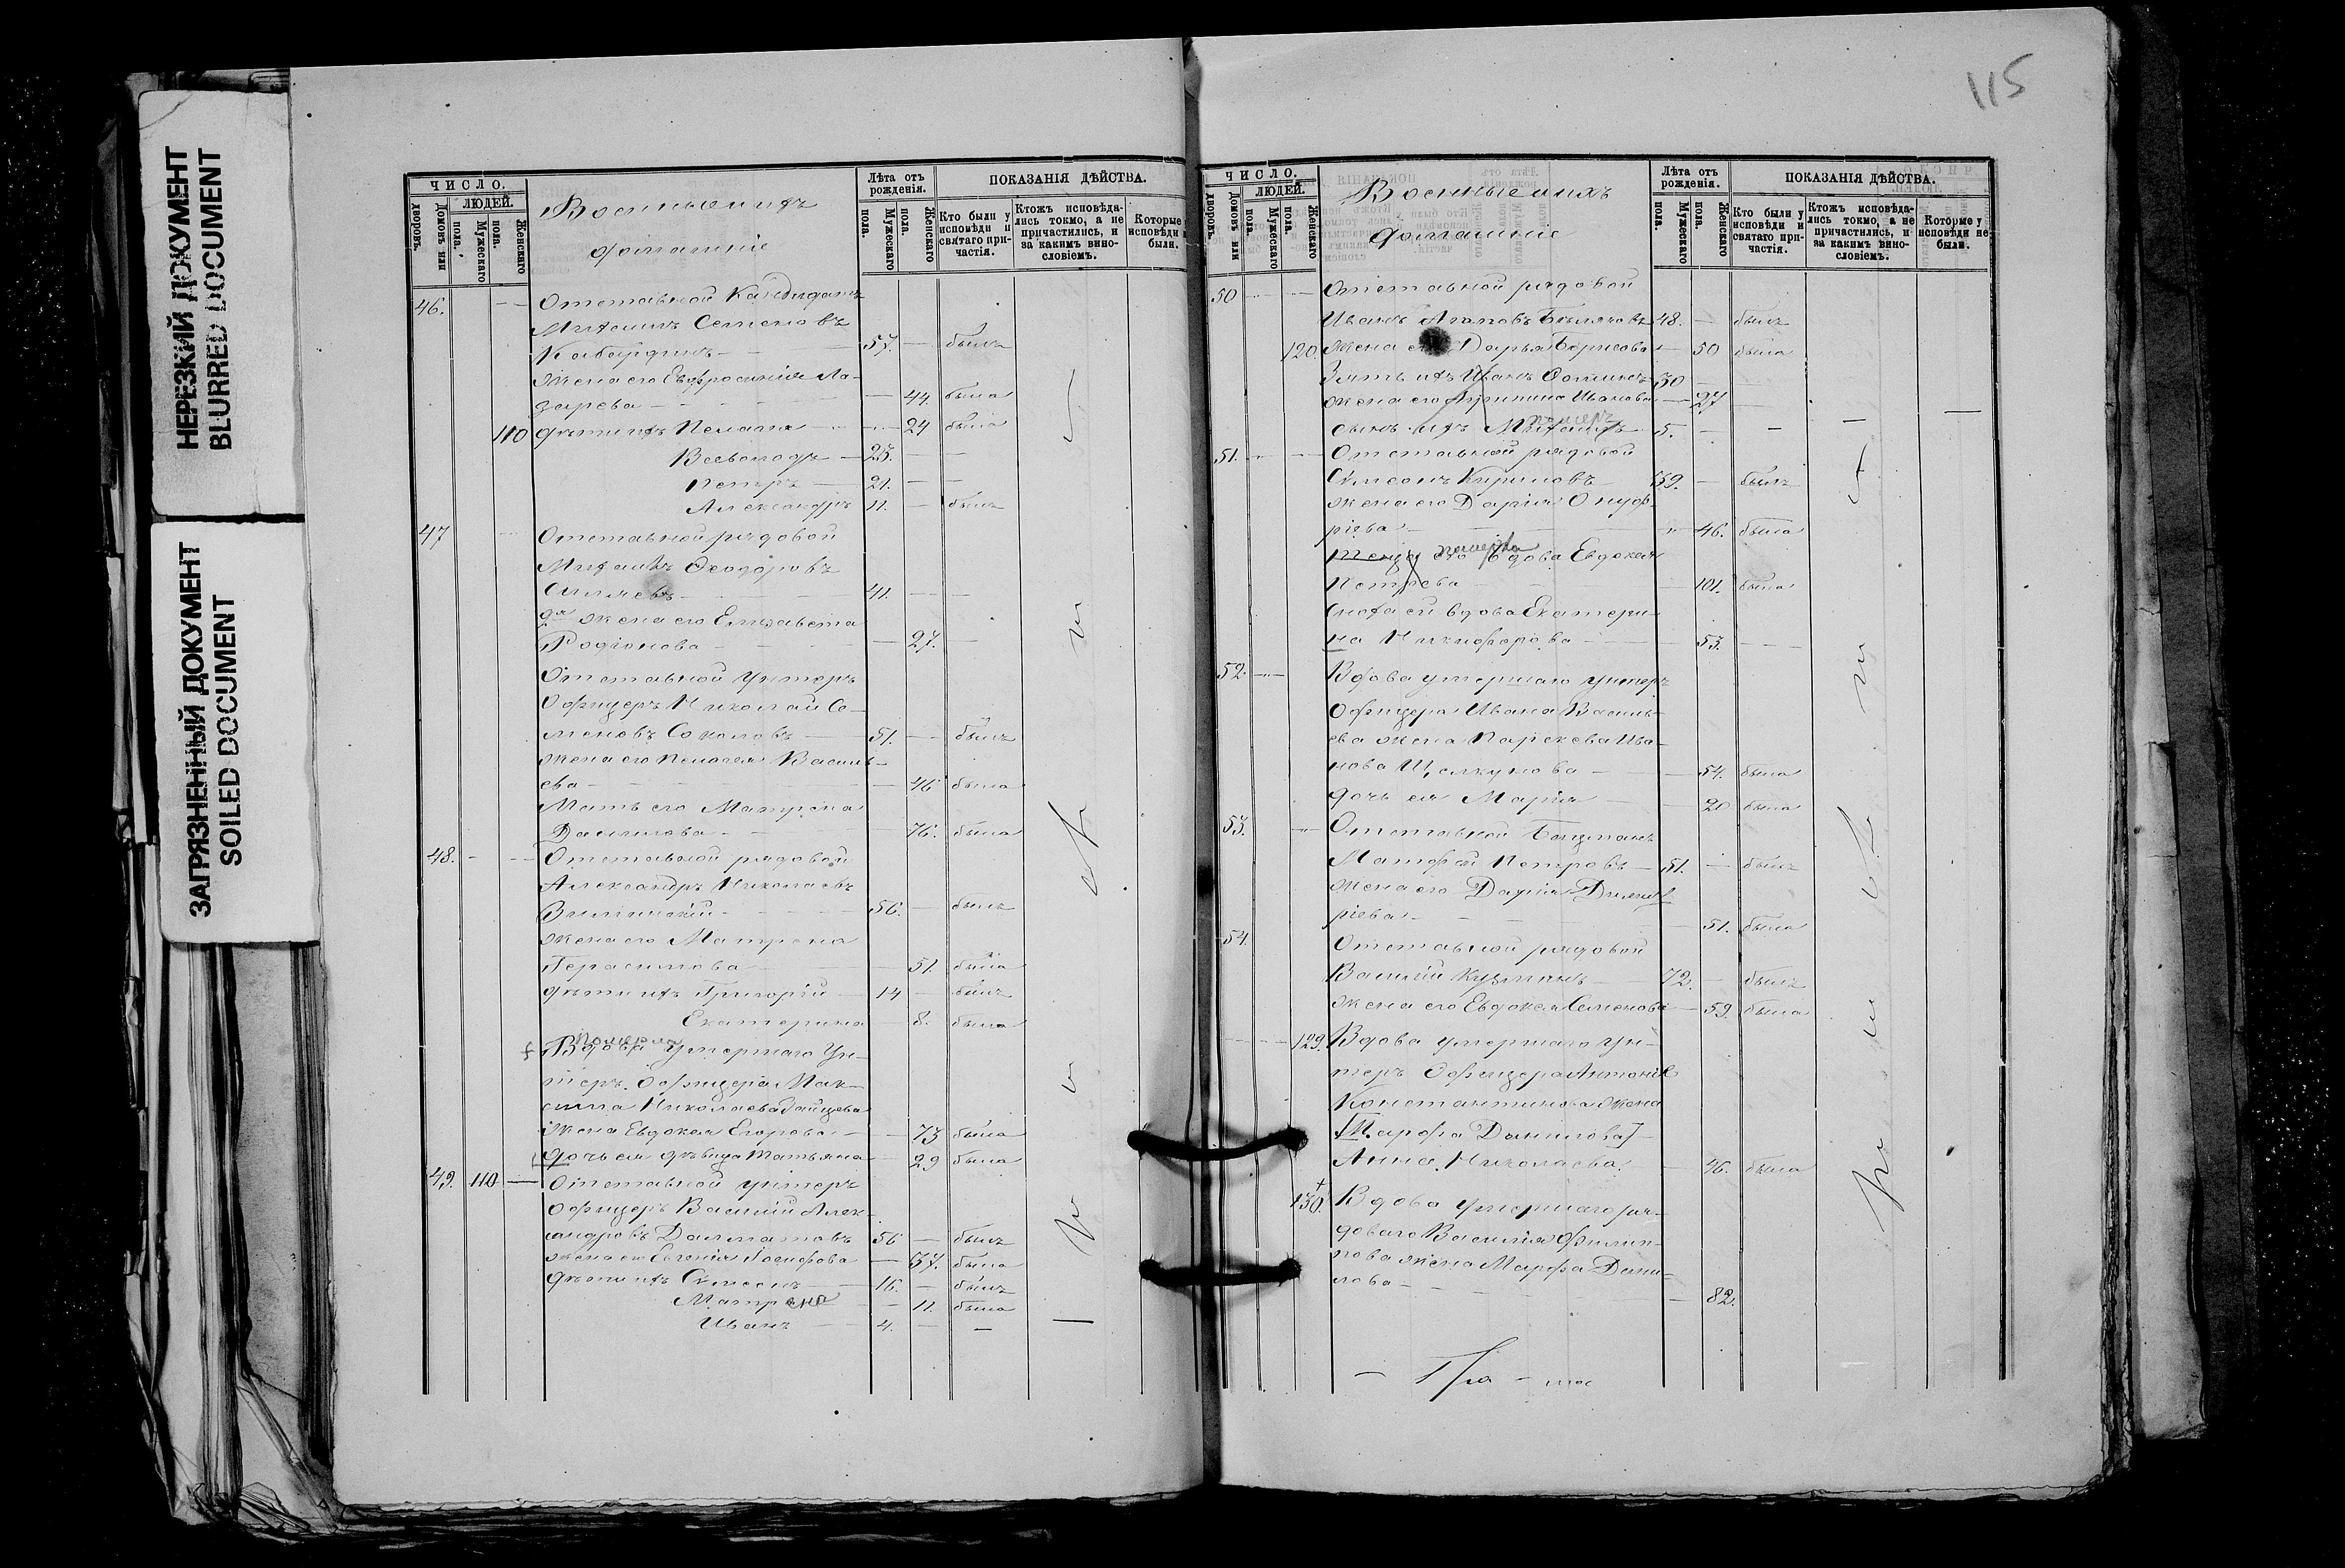 115
НЕРЕЗКИЙ ДОКУМЕНТ
BLURRED DOCUMENT
ЗАГРЯЗНЕННЫЙ ДОКУМЕНТ
SOILED DOCUMENT
ЧИСЛО.
Домовъ или дворовъ.
ЛЮДЕЙ.
Мужескаго пола.
Женскаго пола.
Военные и ихъ
домашніе
Лѣта отъ рожденія.
Мужескаго пола.
Женскаго пола.
ПОКАЗАНІЯ ДѢЙСТВА.
Кто были у исповѣди и святаго причастія.
Ктожъ исповѣдались токмо, а не причастились, и за какимъ винословіемъ.
Которые исповѣди были.
46. Отставной Кандидатъ
Михаилъ Семеновъ
Кабардинъ 57. былъ
Жена его Евфросинія Ла-
зарева 44. была
110 дѣти ихъ Пелагія 24 была
Всеволодъ 25.
Петръ 21.
Александръ 11. былъ
47 Отставной рядовой
Михаилъ Ѳеодоровъ
41.
2я жена его Елизавета
Родіонова 27.
Отставной Унтеръ
Офицеръ Николай Се-
меновъ Соколовъ 51. былъ
Жена его Пелагея Василь-
ева 46 была
Мать его Матрена
Данилова 76. была
48. Отставной рядовой
Александръ Николаевъ
56. былъ
Жена его Матрена
Герасимова 51. была
дѣти ихъ Григорій 14 былъ
Екатерина 8. была
Померла
Вдова умершаго Ун-
теръ Офицера Мак-
сима Николаева Зайцева
Жена Евдокея Егорова 73 была
дочь ея дѣвица Татьяна 29 была
49. 110 Отставной унтеръ
Офицеръ Василій Алек-
сандровъ Далматовъ 56 былъ
жена его Евгенія Іосифова 37. была
дѣти ихъ Симеонъ 16. былъ
Матрена 11. была
Иванъ 4.
ЧИСЛО.
Домовъ или дворовъ.
ЛЮДЕЙ.
Мужескаго пола.
Женскаго пола.
Военные и ихъ
домашніе
Лѣта отъ рожденія.
Мужескаго пола.
Женскаго пола.
ПОКАЗАНІЯ ДѢЙСТВА.
Кто были у исповѣди и святаго причастія.
Ктожъ исповѣдались токмо, а не причастились, и за какимъ винословіемъ.
Которые у исповѣди не были.
50 Отставной рядовой
Иванъ Агаповъ Бѣляковъ 48. былъ
120. Жена Дарья Борисова 50 была
Зять ихъ Иванъ Ѳоминъ 30
жена его Ивановна 27
сынъ ихъ Михаилъ 5.
51. Отставной рядовой
Симеонъ Кириловъ 59. былъ
жена его Дарія Онуф-
ріева 46. была
померла
Теща его вдова Евдокея
Петрова 101. была
Сноха ей вдова Екатери-
на Никифорова 53.
52. Вдова умершаго унтеръ
Офицера Ивана Василь-
ева жена Параскева Ива-
нова Щелкунова 54. была
дочь ея Марія 20 была
53. Отставной Боцманъ
Матфей Петровъ 51. былъ
жена его Дарія Димит-
ріева 51. была
54. Отставной рядовой
Василій Кузминъ 72. былъ
жена его Евдокея Семенова 59. была
129. Вдова умершаго Ун-
теръ Офицера Антонія
Константинова жена
[Марфа Данилова]
Анна Николаева 46. была
130. Вдова умершаго ря-
доваго Василія Филип-
пова жена Марфа Дани-
лова 82.